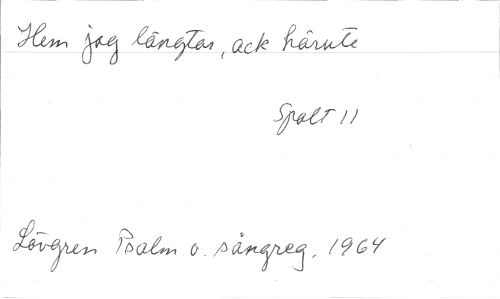 Hem jag längtar, ack härute
Spalt 11
Lövgren Psalm o. sångreg. 1964